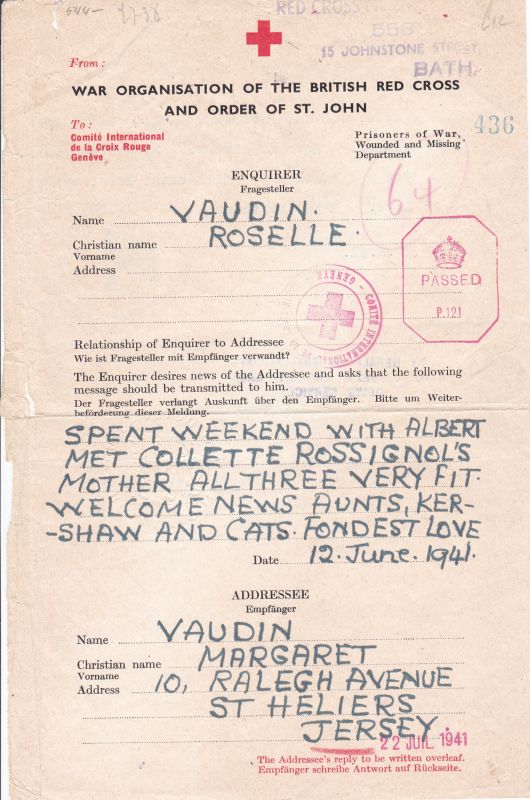 544- 2738
RED CROSS
556
15 JOHNSTONE STREET,
BATH.
From:
WAR ORGANISATION OF THE BRITISH RED CROSS
AND ORDER OF ST. JOHN
To:
Comité International
de la Croix Rouge
Genève
Prisoners of War,
Wounded and Missing
Department
436
ENQUIRER
Fragesteller
64
Name VAUDIN.
Christian name ROSELLE.
Vorname
Address
PASSED
P.121
COMITÉ INTERNATIONAL
GENÈVE
Relationship of Enquirer to Addressee
Wie ist Fragesteller mit Empfänger verwandt?
The Enquirer desires news of the Addressee and asks that the following
message should be transmitted to him.
Der Fragesteller verlangt Auskunft über den Empfänger. Bitte um Weiter-
beförderung dieser Meldung.
SPENT WEEKEND WITH ALBERT
MET COLLETTE ROSSIGNOL'S
MOTHER ALL THREE VERY FIT.
WELCOME NEWS AUNTS, KER-
-SHAW AND CATS. FONDEST LOVE
Date 12. June. 1941.
ADDRESSEE
Empfänger
Name VAUDIN
Christian name MARGARET
Vorname
Address 10, RALEGH AVENUE
ST HELIERS
JERSEY.
22 JUIL 1941
The Addressee's reply to be written overleaf.
Empfänger schreibe Antwort auf Rückseite.